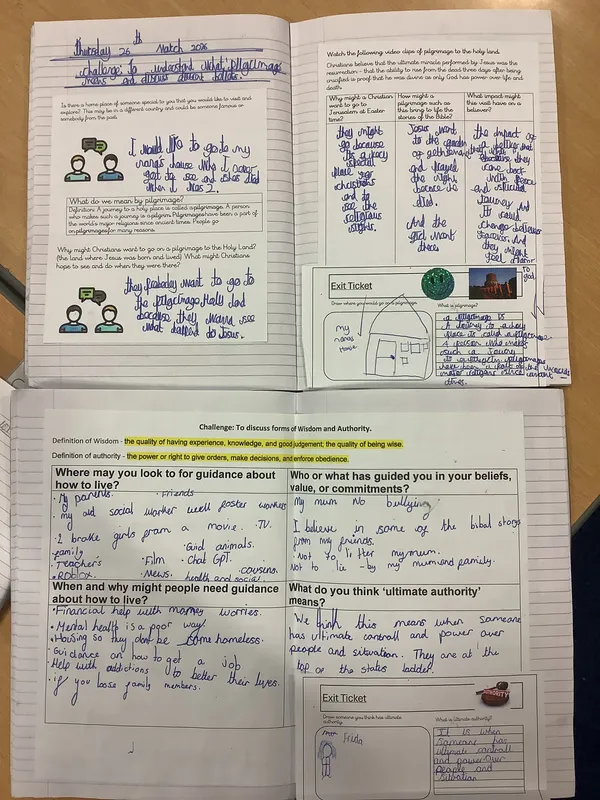 Thursday 26th March 2026
challenge: To understand what pilgrimage
means and discuss different
Is there a home place of someone special to you that you would like to visit and
explore? This may be in a different country and could be someone famous or
somebody from the past.
I would like to go to my
nana's house who I never
got to see and
when I was 2.
What do we mean by pilgrimage?
Definition: A journey to a holy place is called a pilgrimage. A person
who makes such a journey is a pilgrim. Pilgrimages have been a part of
the world's major religions since ancient times. People go
on pilgrimages for many reasons.
Why might Christians want to go on a pilgrimage to the Holy Land?
(the land where Jesus was born and lived) What might Christians
hope to see and do when they were there?
they probaley want to go to
the pilgrimage Holly land
because they wanna see
what happend to Jesus.
Watch the following video clips of pilgrimage to the holy land.
Christians believe that the ultimate miracle performed by Jesus was the
resurrection - that the ability to rise from the dead three days after being
crucified is proof that he was divine as only God has power over life and
death.
Why might a Christian
want to go to
Jerusalem at Easter
time?
they might
go because
its a very
speciall
place for
christians
and to
see the
religious
sights.
How might a pilgrimage
such as this bring to life the
stories of the Bible?
Jesus went
to the garden
of gethsemane
and prayed
the night
before he
died.
And the
girl went
there
What impact might
this visit have on a believer?
the impact of
a beliver
because, they
come back
with peace
and
Journey And
It could
change believer
forever. And
they might
feel closer
to god.
Exit Ticket
Draw where you would go on a pilgrimage
my
nanas
House
What is pilgrimage?
a pilgrimage is
A Journey to a holy
place is called a pilgrimage
A person who makes
such a Journey
is a pilgrim pilgrimages
have been a part of the worlds
major religions since ancient
times.
Challenge: To discuss forms of Wisdom and Authority.
Definition of Wisdom - the quality of having experience, knowledge, and good judgement; the quality of being wise.
Definition of authority - the power or right to give orders, make decisions, and enforce obedience.
Where may you look to for guidance about
how to live?
• My parents. • Friends
• my old social worker well foster workers
• 2 broke girls from a movie. • TV.
family • Guid animals.
• Teacher's • Film • Chat GPT.
• ROBLOX. • News. health and social. • cousins
Who or what has guided you in your beliefs,
value, or commitments?
My mum No bullying
I believe in some of the bibal storys
from my friends.
• Not to litter my mum.
Not to lie - by my mum and family.
When and why might people need guidance
about how to live?
• Financial help with money worries.
• Mental health is a poor way.
• Housing so they dont be come homeless.
• Guidance on how to get a job
• Help with addictions to better their lives.
• if you loose family members.
What do you think 'ultimate authority'
means?
We think this means when someone
has ultimate controll and power over
people and situation. They are at the
top of the states ladder.
Exit Ticket
AUTHORITY
Draw someone you think has ultimate
authority.
mum
What is ultimate authority?
It is when
Someone has
ultimate controll
and power over
people and
Situation